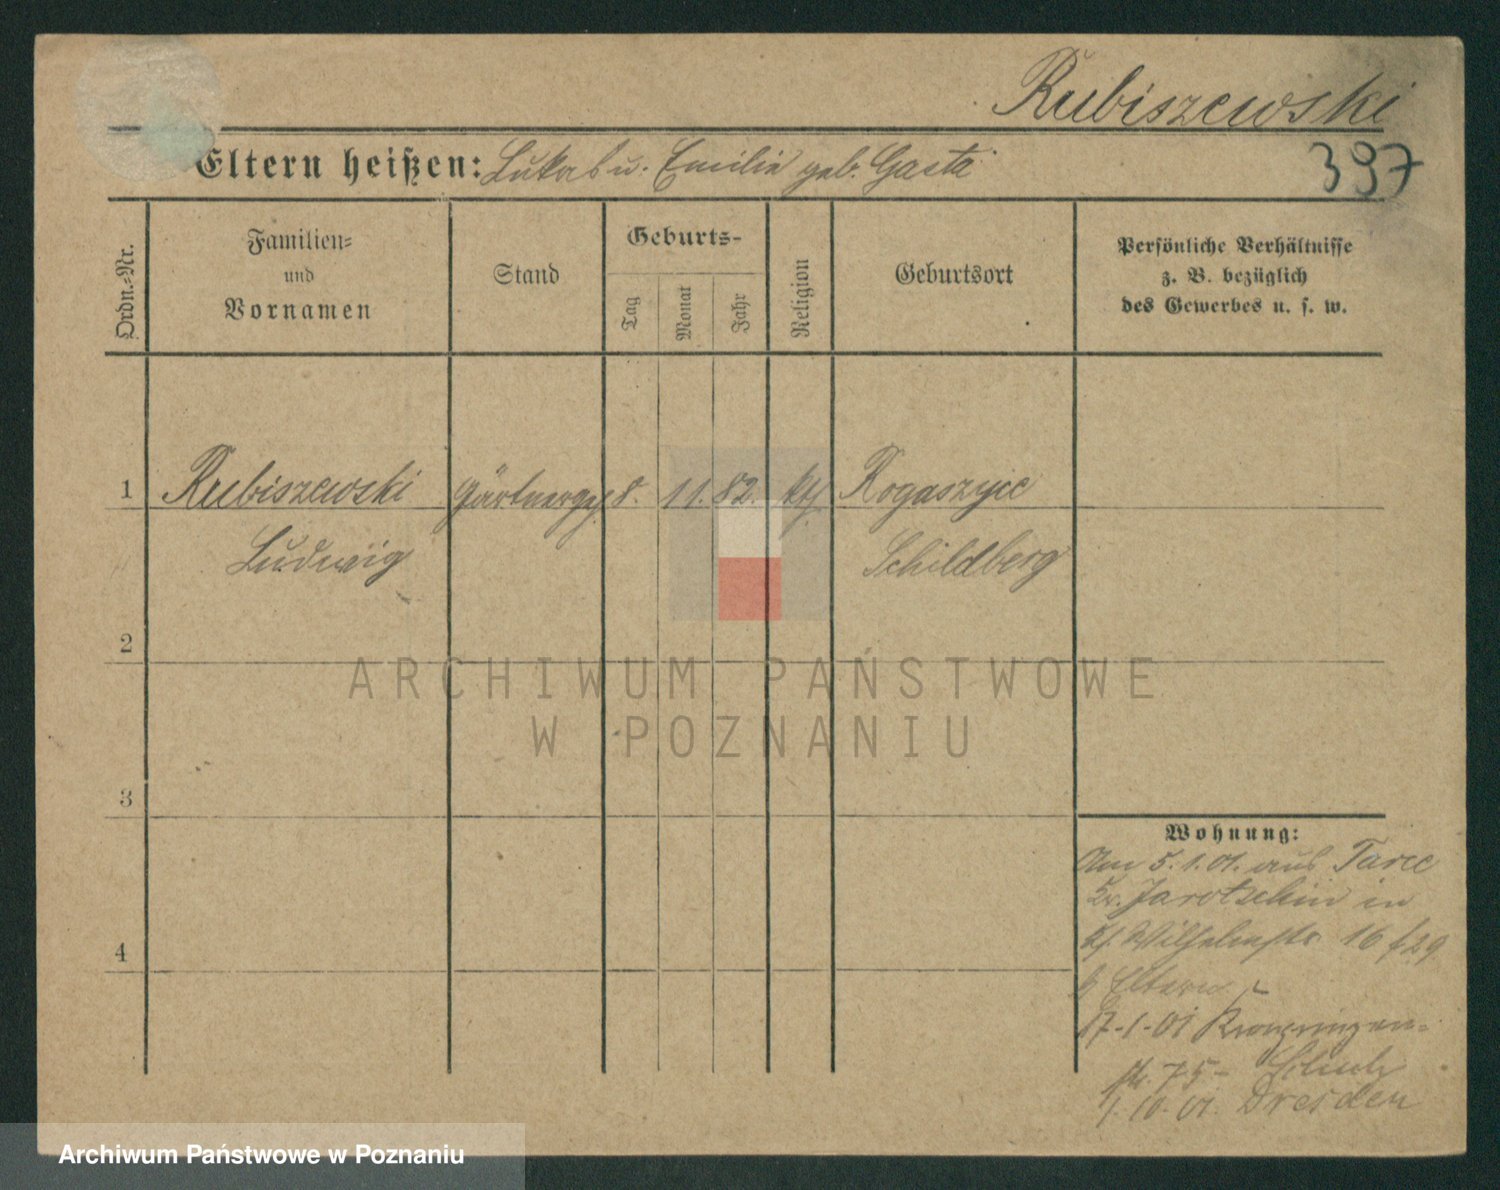 Rubiszewski
397
Eltern heißen: Lukas u. Emilie geb. Gasta
Ordn.-Nr.
Familien-
und
Vornamen
Stand
Geburts-
Tag
Monat
Jahr
Religion
Geburtsort
Persönliche Verhältnisse
z. B. bezüglich
des Gewerbes u. s. w.
1 Rubiszewski Gärtnergeh. 8. 11. 82. kth Rogaszyce
Ludwig Schildberg
2
3
4
Wohnung:
Am 5.1.01. aus Tarce
Kr. Jarotschin in
Wilhelmstr. 16
b Eltern
17-1-01 Kronprinzen-
str. 75- Schulz
1.10.01. Dresden
ARCHIWUM PAŃSTWOWE
W POZNANIU
Archiwum Państwowe w Poznaniu